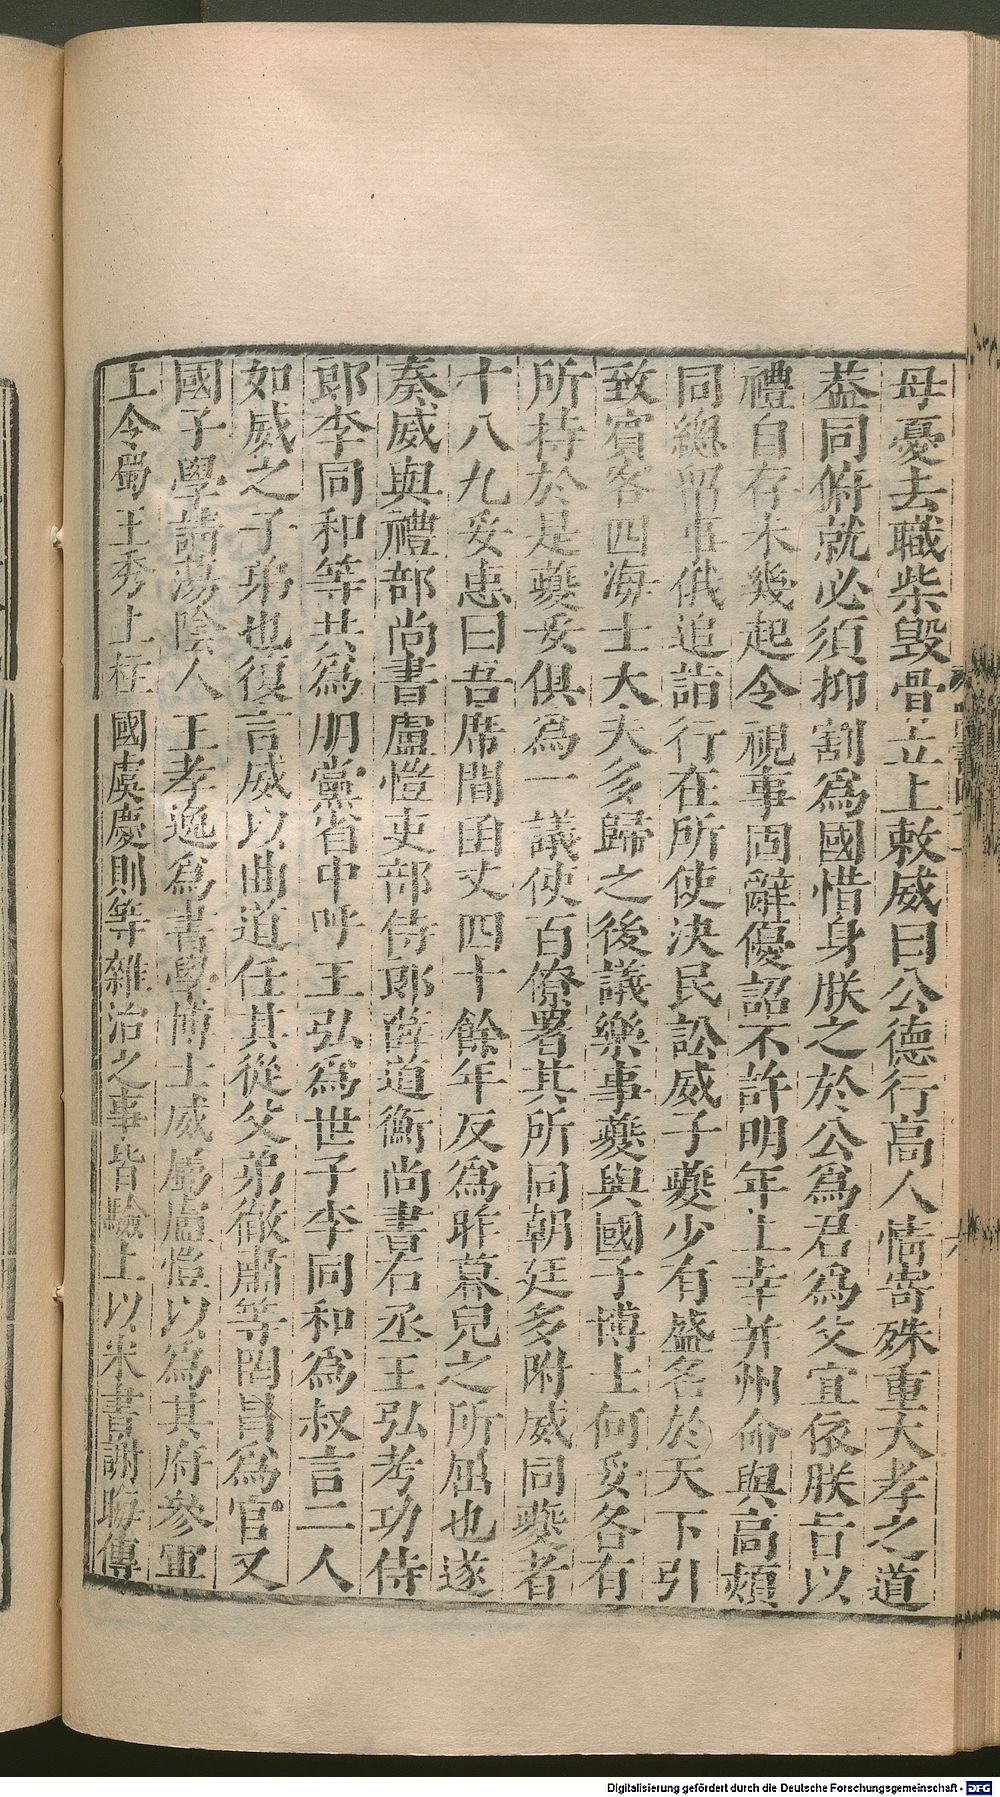 母憂去職柴毀骨立上敕威曰公德行高人情寄殊重大孝之道
葢同俯就必須抑割爲國惜身朕之於公爲君爲父宜依朕旨以
禮自存未幾起令視事固辭優詔不許明年上幸并州命與高熲
同總留事俄追詣行在所使決民訟威子夔少有盛名於天下引
致賓客四海士大夫多歸之後議樂事夔與國子博士何妥各有
所持於是夔妥俱爲一議使百僚署其所同朝廷多附威同夔者
十八九妥恚曰吾席間函丈四十餘年反爲昨暮兒之所屈也遂
奏威與禮部尚書盧愷吏部侍郎薛道衡尚書右丞王弘考功侍
郎李同和等共爲朋黨省中呼王弘爲世子李同和爲叔言二人
如威之子弟也復言威以曲道任其從父弟徹肅等罔冒爲官又
國子學請蕩陰人王孝逸爲書學博士威屬盧愷以爲其府參軍
上令蜀王秀上柱國虞慶則等雜治之事皆驗上以宋書謝晦傳
Digitalisierung gefördert durch die Deutsche Forschungsgemeinschaft - DFG